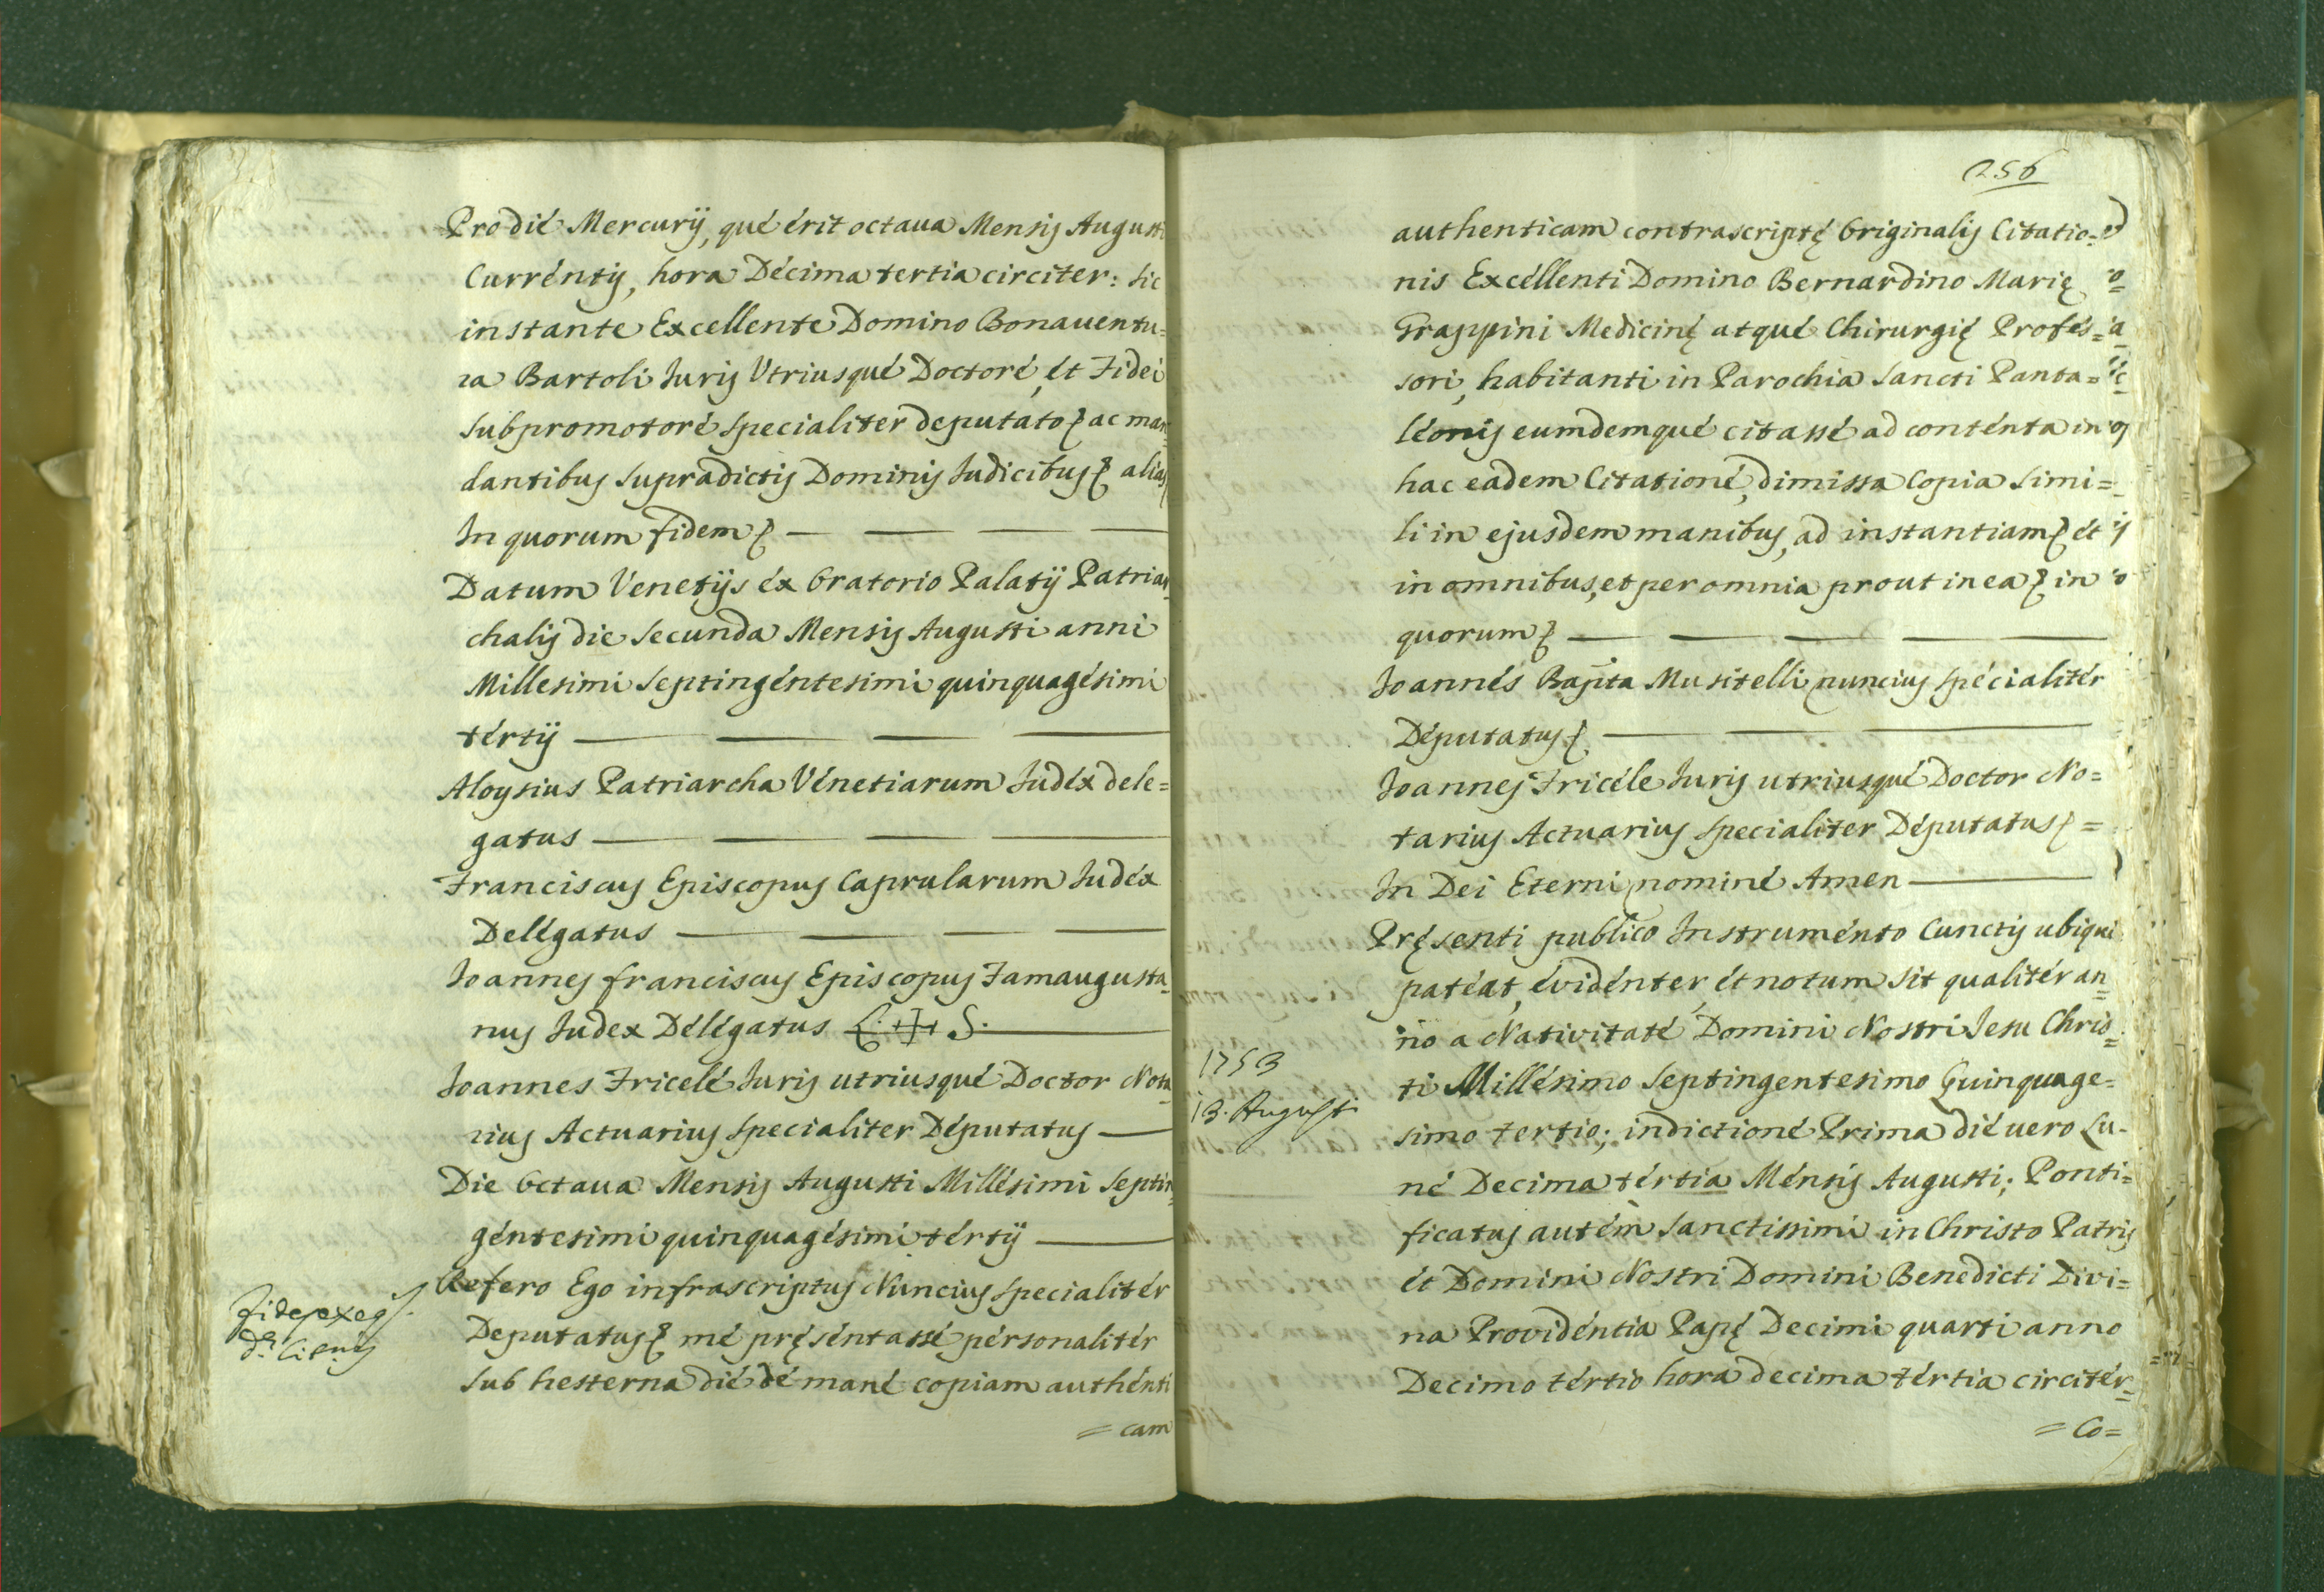 Pro dié Mercurÿ, qué érit octaua Mensis Augusti
Curréntis, hora Décima tertia circiter: sic
instante Excellente Domino Bonauentu=
ra Bartoli Juris Utriusqué Doctoré, ét Fidei
subpromotoré specialiter deputato ac man=
dantibus supradictis Dominis Judicibus alias
In quorum fidem
Datum Venetÿs éx Oratorio Palatÿ Patriar=
chalis die secunda Mensis Augusti anni
Millesimi septingéntesimi quinquagésimi
tértÿ
Aloysius Patriarcha Vénetiarum Judéx dele=
gatus
Franciscus Episcopus Caprularum Judéx
Delégatus
Joannes franciscus Episcopus Famaugusta=
nus Judex Délégatus L. + S.
Joannes Fricelé Juris utriusqué Doctor Nota=
rius Actuarius specialiter Députatus
Die Octaua Mensis Augusti Millésimi septin=
géntesimi quinquagésimi tértÿ
Refero Ego infrascriptus Nuncius specialitér
Deputatus mé pręséntassé pérsonalitér
sub hesterna dié dé mané copiam authénti
= cam
256
authenticam contrascriptę Originalis Citatio=
nis Excéllenti Domino Bernardino Marię
Grappini Medicinę atqué Chirurgię Profés=
sori, habitanti in Parochia Sancti Panta=
léonis eumdemqué citassé ad conténta in
hac eadem Citationé, dimissa Copia simi=
li in ejusdem manibus, ad instantiam ét
in omnibus, et per omnia prout in ea in
quorum
Joannés Bapta Musitelli nuncius spécialitér
Députatus
Joannes Fricéle Juris utriusqué Doctor No=
tarius Actuarius specialiter Députatus =
In Dei Eterni nominé Amen
Pręsenti publico Instruménto Cunctis ubiqué
patéat, évidénter, ét notum sit qualitér an=
no a Nativitaté Domini Nostri Jesu Chris=
1753
13. Augusti
ti Millésimo septingentesimo Quinquage=
simo tertio; indictioné Prima dié uero Lu=
né Decima tértia Ménsis Augusti; Ponti=
ficatus autém Sanctissimi in Christo Patris
ét Domini Nostri Domini Benedicti Divi=
na Providéntia Papę Decimi quarti anno
Decimo tértio hora decima tértia circitér=
= Co=